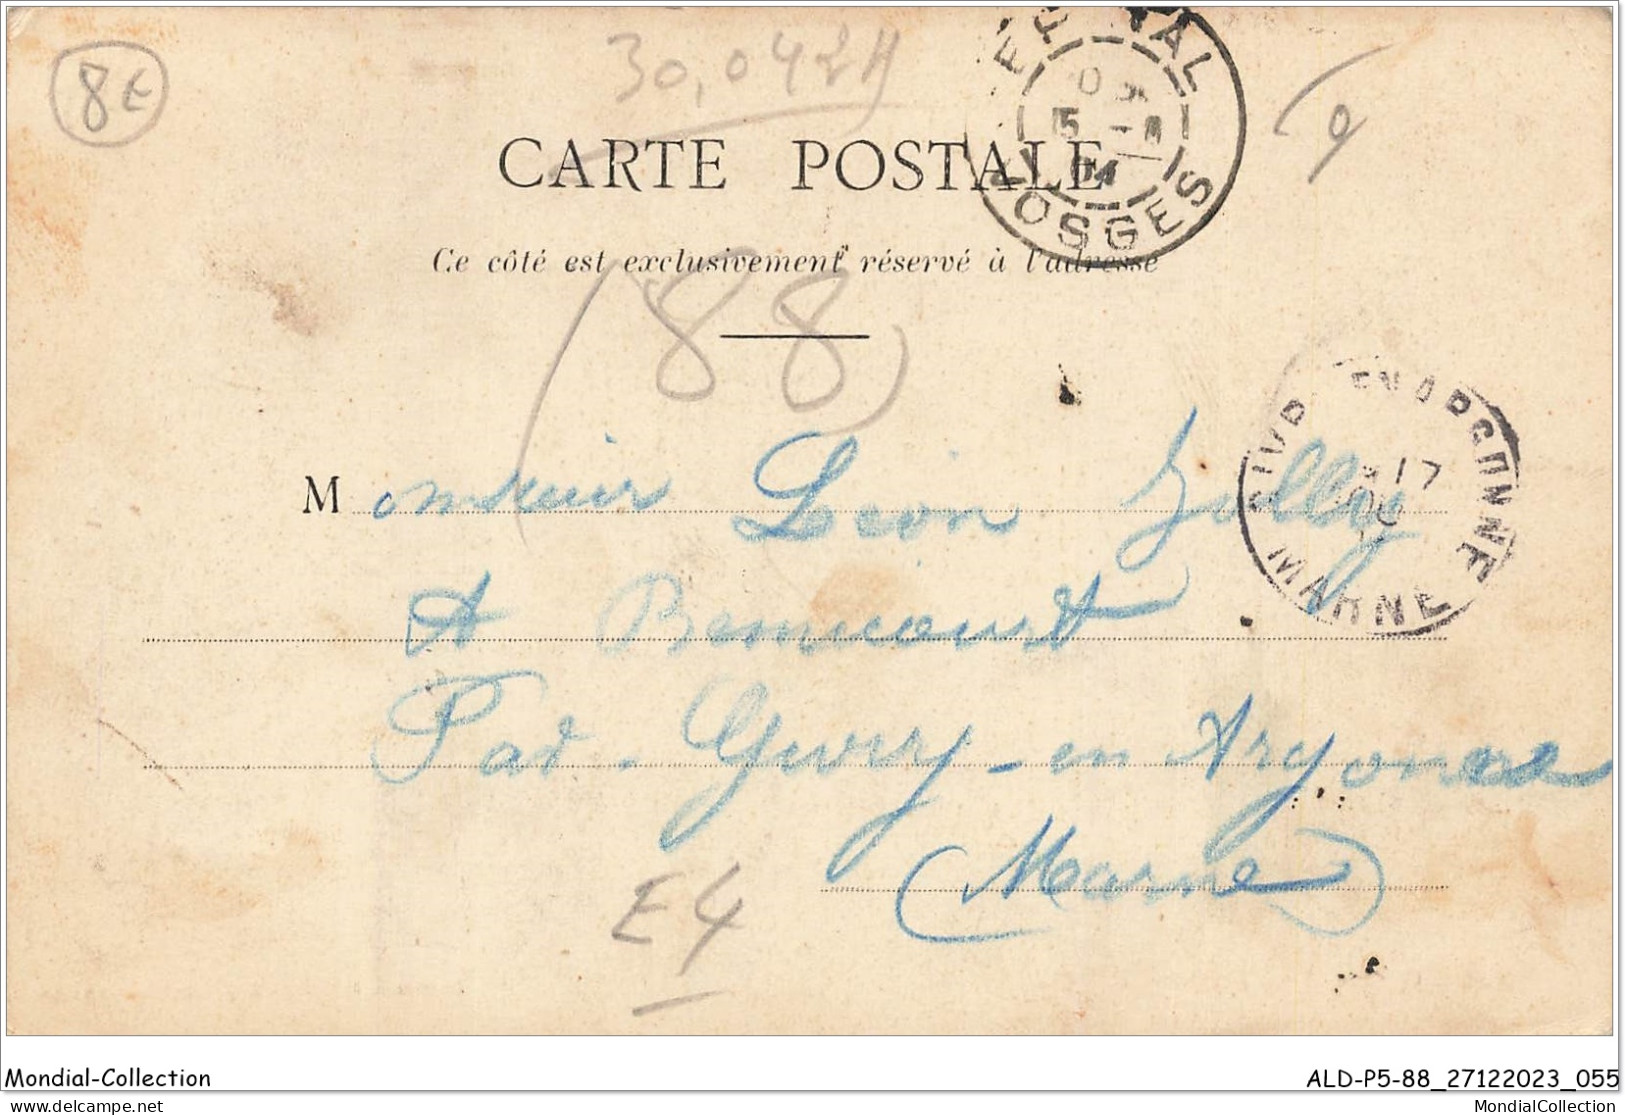 8€
30,042H
EPINAL
5 -
04
VOSGES
9
CARTE POSTALE
Ce côté est exclusivement réservé à l'adresse
(88)
GIVRY-EN-ARGONNE
17
MARNE
Monsieur Léon
A
Par Givry-en Argonne
(Marne)
E4
Mondial-Collection
ALD-P5-88_27122023_055
delcampe.net
MondialCollection